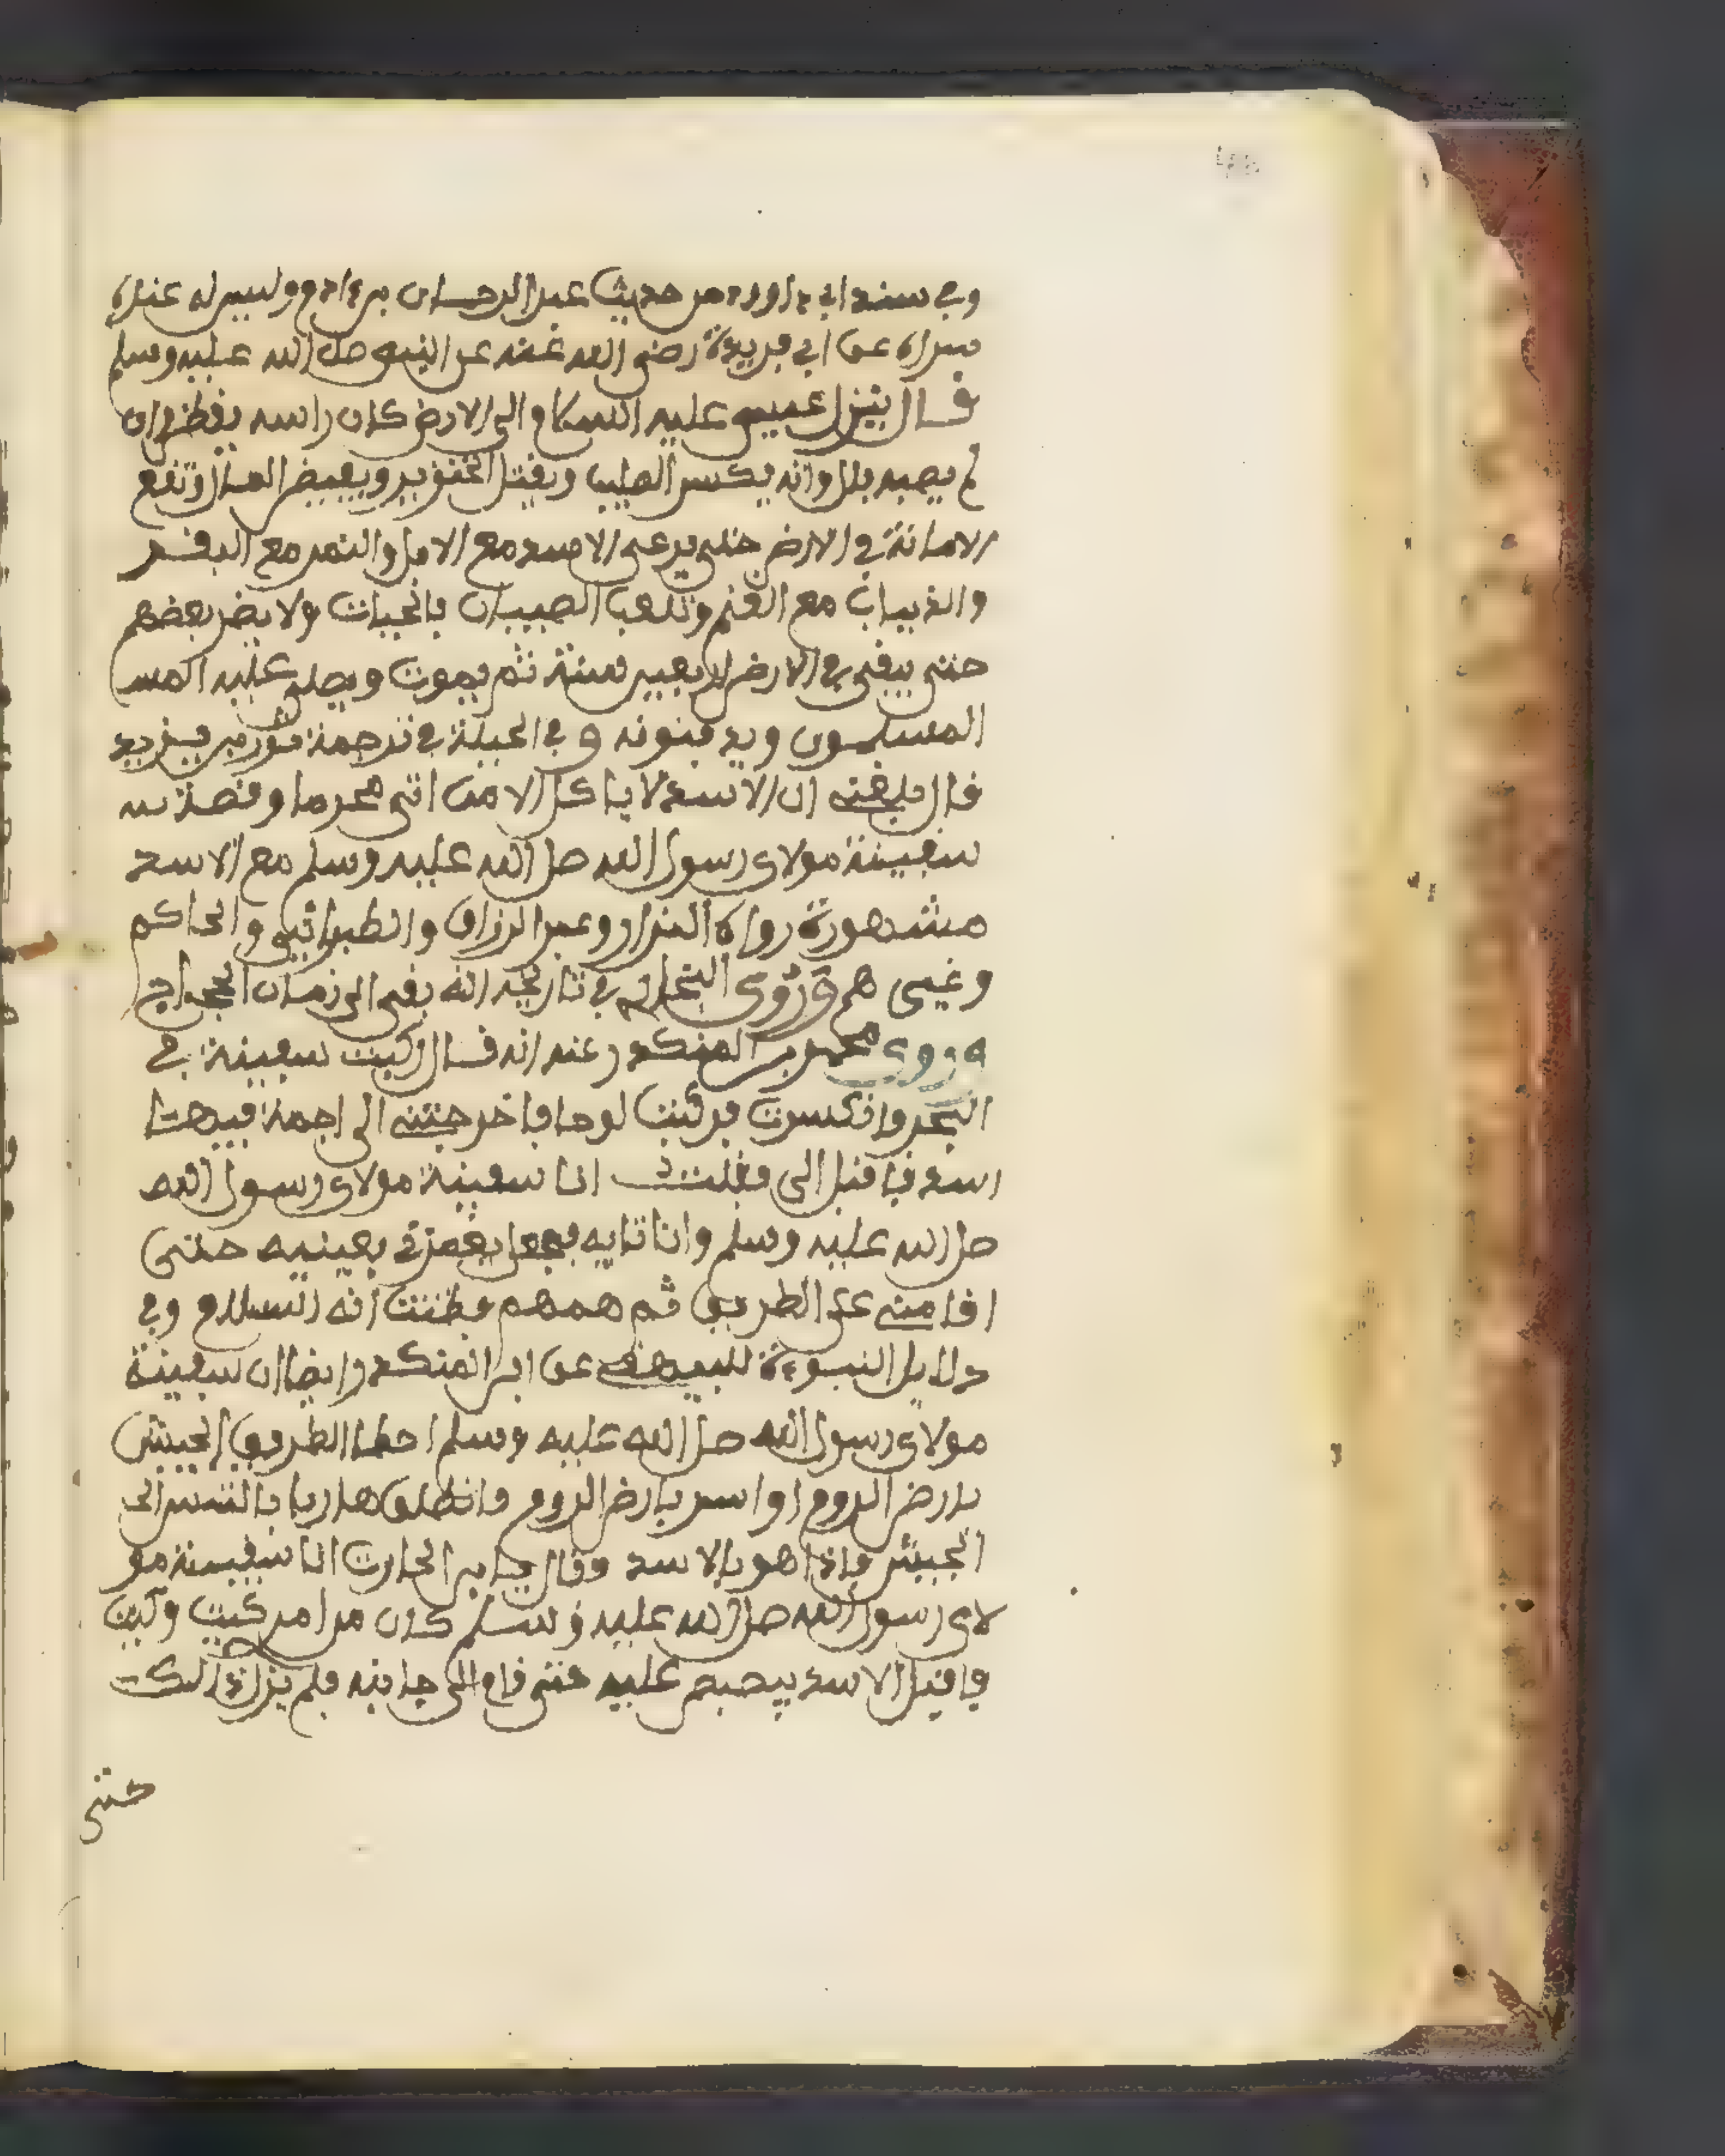 وفي سنن ابي داوود من حديث عبد الرحمان بن ءادم وليس له عنده
سواه عن ابي هريرة رضي الله عنه عن النبي صلى الله عليه وسلم
قال ينزل عيسى عليه السلام الى الارض كان راسه يقطر وان
لم يصبه بلل وانه يكسر الصليب ويقتل الخنزير ويفيض المال وتقع
الامانة في الارض حتى يرعى الاسد مع الابل والنمر مع البقر
والذياب مع الغنم وتلعب الصبيان بالحيات ولا يضر بعضهم
حتى يبقى في الارض اربعين سنة ثم يموت ويصلي عليه المسـ
المسلمون ويدفنونه وفي الحلية في ترجمة ثور بن يزيد
قال بلغني ان الاسد لا ياكل الا من اتى محرما وقصة سـ
سفينة مولاى رسول الله صلى الله عليه وسلم مع الاسد
مشهورة رواه البزار وعبد الرزاق والطبراني والحاكم
وغيرهم وروى البخاري في تاريخه انه بقى الى زمان الحجاج
وروى محمد بن المنكدر عنه انه قال ركبت سفينة في
البحر وانكسرت فركبت لوحا فاخرجتني الى اجمة فيها
اسد فاقبل الي فقلت انا سفينة مولاى رسول الله
صلى الله عليه وسلم وانا تايه فجعل يغمزني بعينيه حتى
اقامني على الطريق ثم همهم فظننت انه السلام وفي
دلايل النبوءة للبيهقي عن ابن المنكدر ايضا ان سفينة
مولاى رسول الله صلى الله عليه وسلم اخطا الطريق الجيش
بارض الروم او اسر بارض الروم فانطلق هاربا يالتمس الى
الجيش فاذا هو بالاسد فقال يا با الحارث انا سفينة مو
لاى رسول الله صلى الله عليه وسلم كان من امر كيت وكيت
فاقبل الاسد يبصبص عليه حتى قام الى جانبه فلم يزل ذالك
حتى